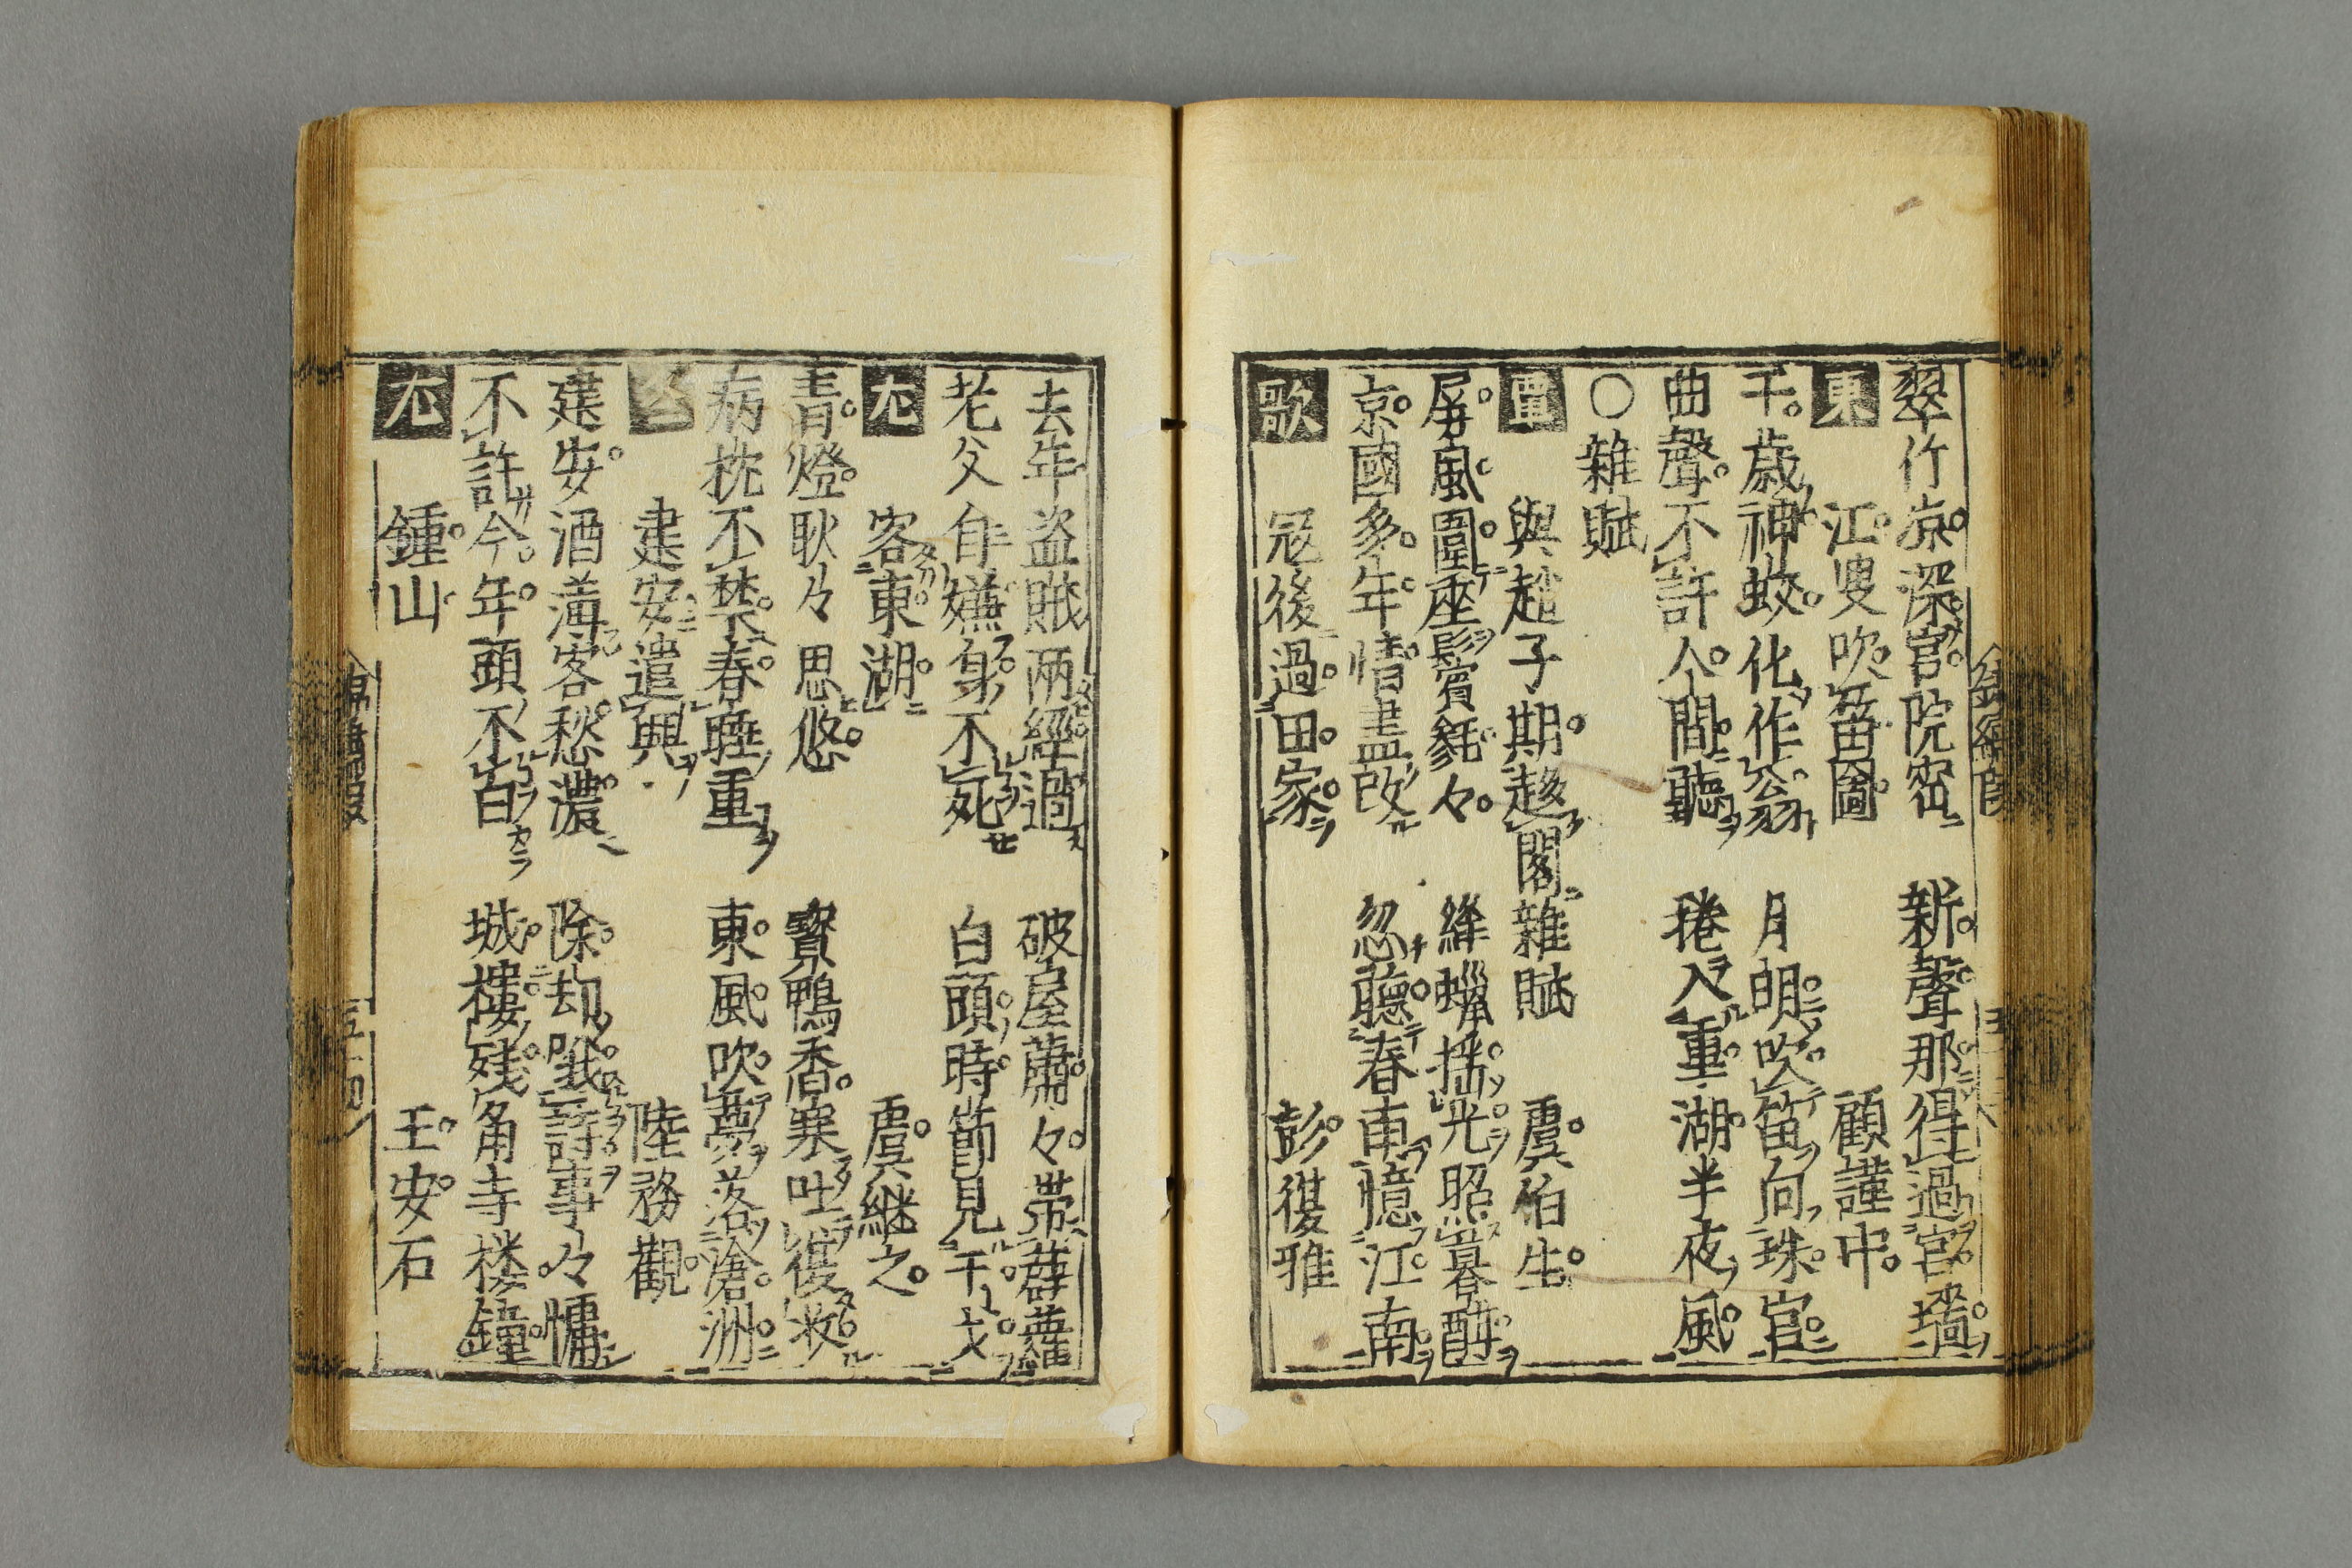 翠竹凉深宮院密　新聲那得過宮墻
東　江叟吹笛圖　顧謹中
千歳神蛟化作翁　月明吹笛向珠宮
曲聲不許人間聽　捲入重湖半夜風
○雜賦
與趙子期趍閣雜賦　虞伯生
屏風圍座鬢毿々　絳蠟揺光照暮酣
京國多年情盡改　忽聽春雨憶江南
歌　冦後過田家　彭復雅
去年盗賊両經過　破屋蕭々帯薜蘿
老父自嫌身不死　白頭時節見干戈
尤　客東湖　虞継之
青燈耿々思悠々　寳鴨香寒吐復收
病枕不禁春睡重　東風吹夢落滄洲
建安遣興　陸務觀
建安酒薄客愁濃　除却哦詩事々慵
不許今年頭不白　城樓残角寺楼鐘
尤　鍾山　王安石